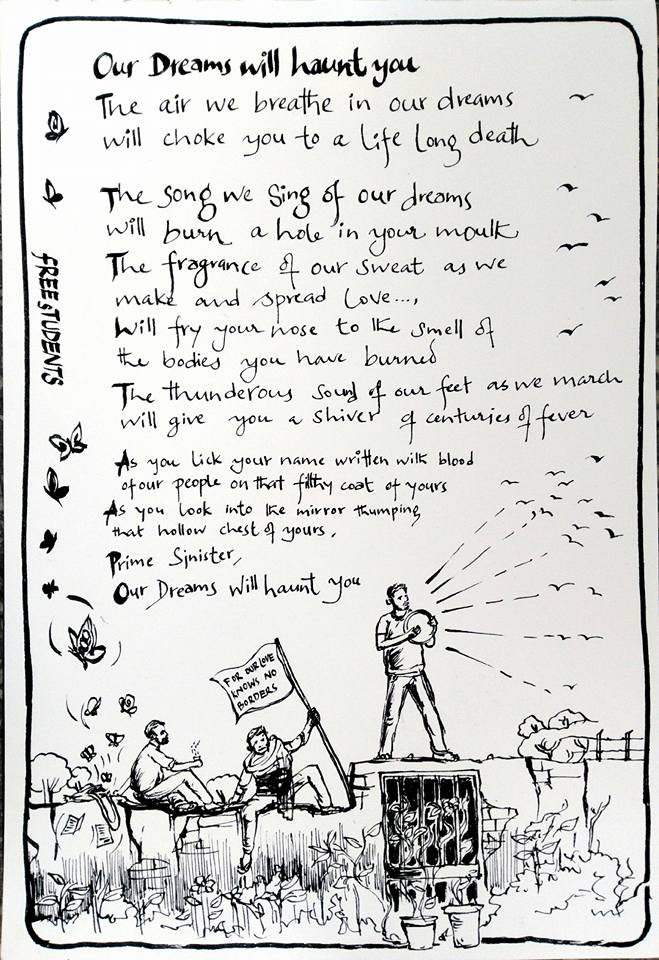 Our Dreams will haunt you
The air we breathe in our dreams
will choke you to a life long death
The song we sing of our dreams
will burn a hole in your mouth
The fragrance of our sweat as we
make and spread love...,
Will fry your nose to the smell of
the bodies you have burned
The thunderous sound of our feet as we march
will give you a shiver of centuries of fever
As you lick your name written with blood
of our people on that filthy coat of yours
As you look into the mirror thumping
that hollow chest of yours,
Prime Sinister,
Our Dreams will haunt you
FREE STUDENTS
FOR OUR LOVE
KNOWS NO
BORDERS